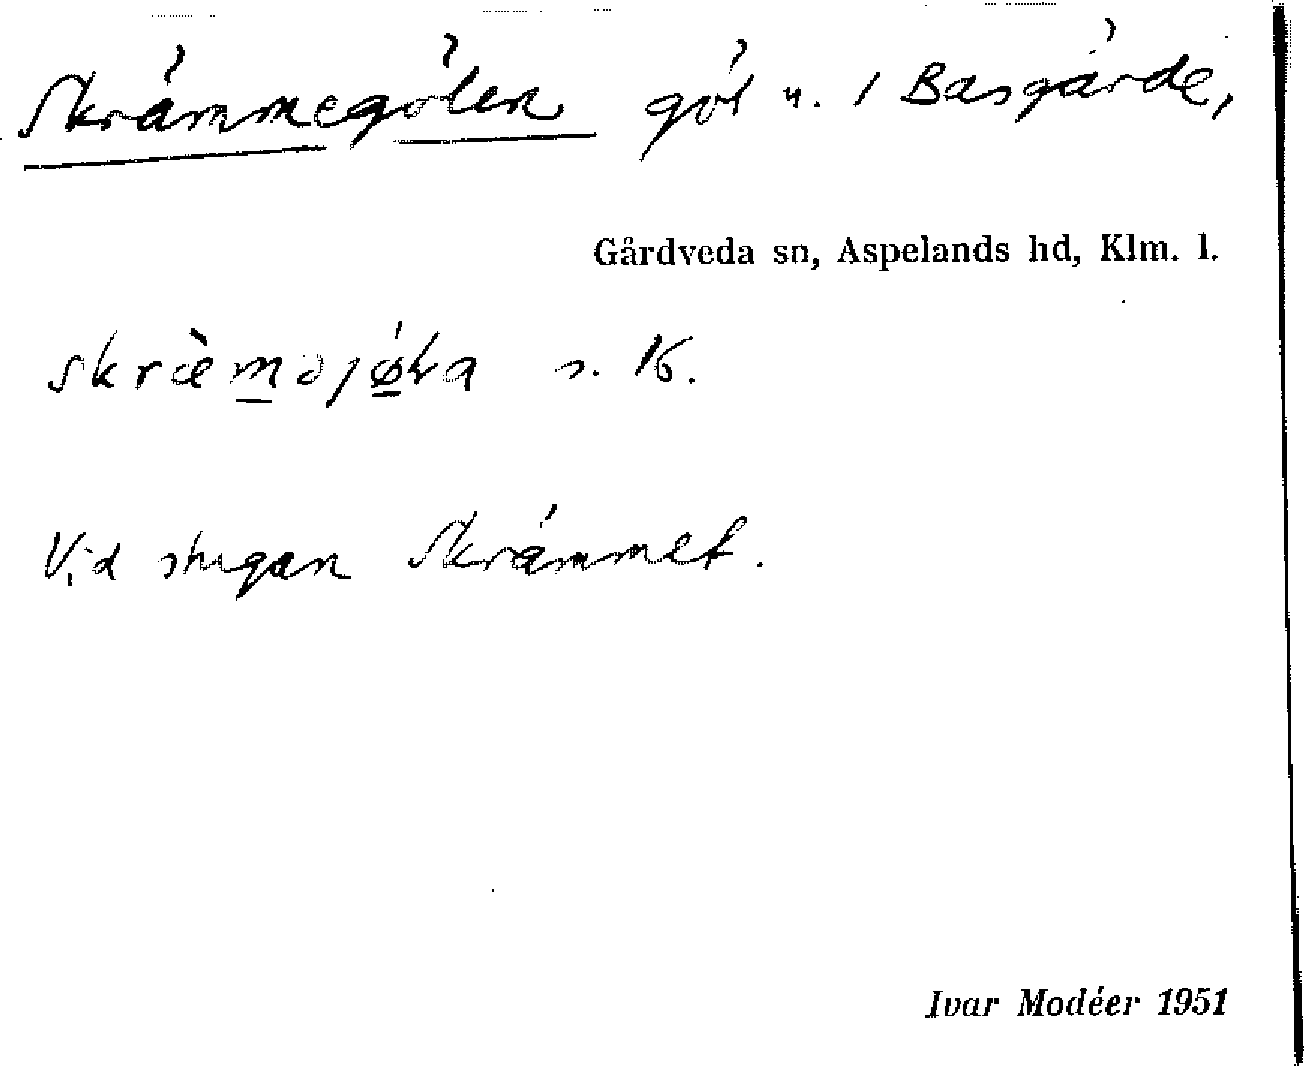 Skrämmegölen göl u. / Basgärde,
Gårdveda sn, Aspelands hd, Klm. l.
skræ̀məjø̀ka s. 16.
Vid stugan Skrämmet.
Ivar Modéer 1951